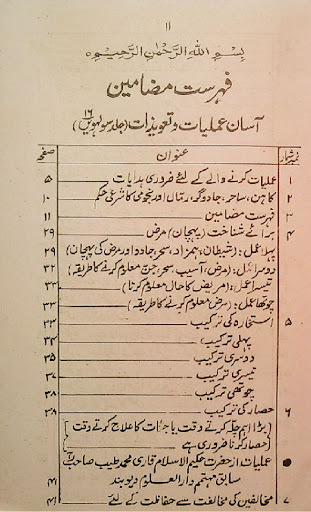 ۱۱
بِسْمِ اللهِ الرَّحْمٰنِ الرَّحِیْمِ
فہرست مضامین
آسان عملیات و تعویذات (جلد سولہویں ۱۶)
نمبر شمار عنوان صفحہ
۱ عملیات کرنے والے کے لئے ضروری ہدایات ۵
۲ کاہن، ساحر، جادوگر، رمّال، اور نجومی کا شرعی حکم ۱۰
۳ فہرست مضامین ۱۱
۴ برائے شناخت (پہچان) مرض ۲۹
پہلا عمل: (شیطان، ہمزاد، سحر، جادو اور مرض کی پہچان) ۲۹
دوسرا عمل: (مرض، آسیب، سحر، جن، معلوم کرنے کا طریقہ) ۳۲
تیسرا عمل: (مریض کا حال معلوم کرنا) ۳۳
چوتھا عمل: (مرض معلوم کرنے کا طریقہ) ۳۳
۵ استخارہ کی ترکیب ۳۳
پہلی ترکیب ۳۴
دوسری ترکیب ۳۵
تیسری ترکیب ۳۷
چوتھی ترکیب ۳۸
۶ حصار کی ترکیب ۳۸
[بڑا اہم چلہ کرتے وقت یا جنات کا علاج کرتے وقت
حصار کرنا ضروری ہے]
● عملیات از حضرت حکیم الاسلام قاری محمد طیب صاحبؒ
سابق مہتمم دار العلوم دیوبند ۴۱
۷ مخالفین کی مخالفت سے حفاظت کے لئے ۴۱